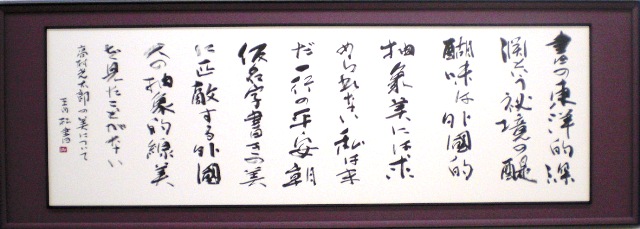 書の東洋的深
渕という秘境の醍
醐味は外國的
抽象美には求
められない私はま
だ一行の平安朝
仮名字書きの美
に匹敵する外國
人の抽象的線美
を見たことがない
高村光太郎の美について